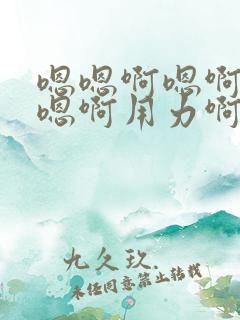 嗯嗯啊嗯啊
嗯啊用力啊
九久玖.
未经同意禁止转载